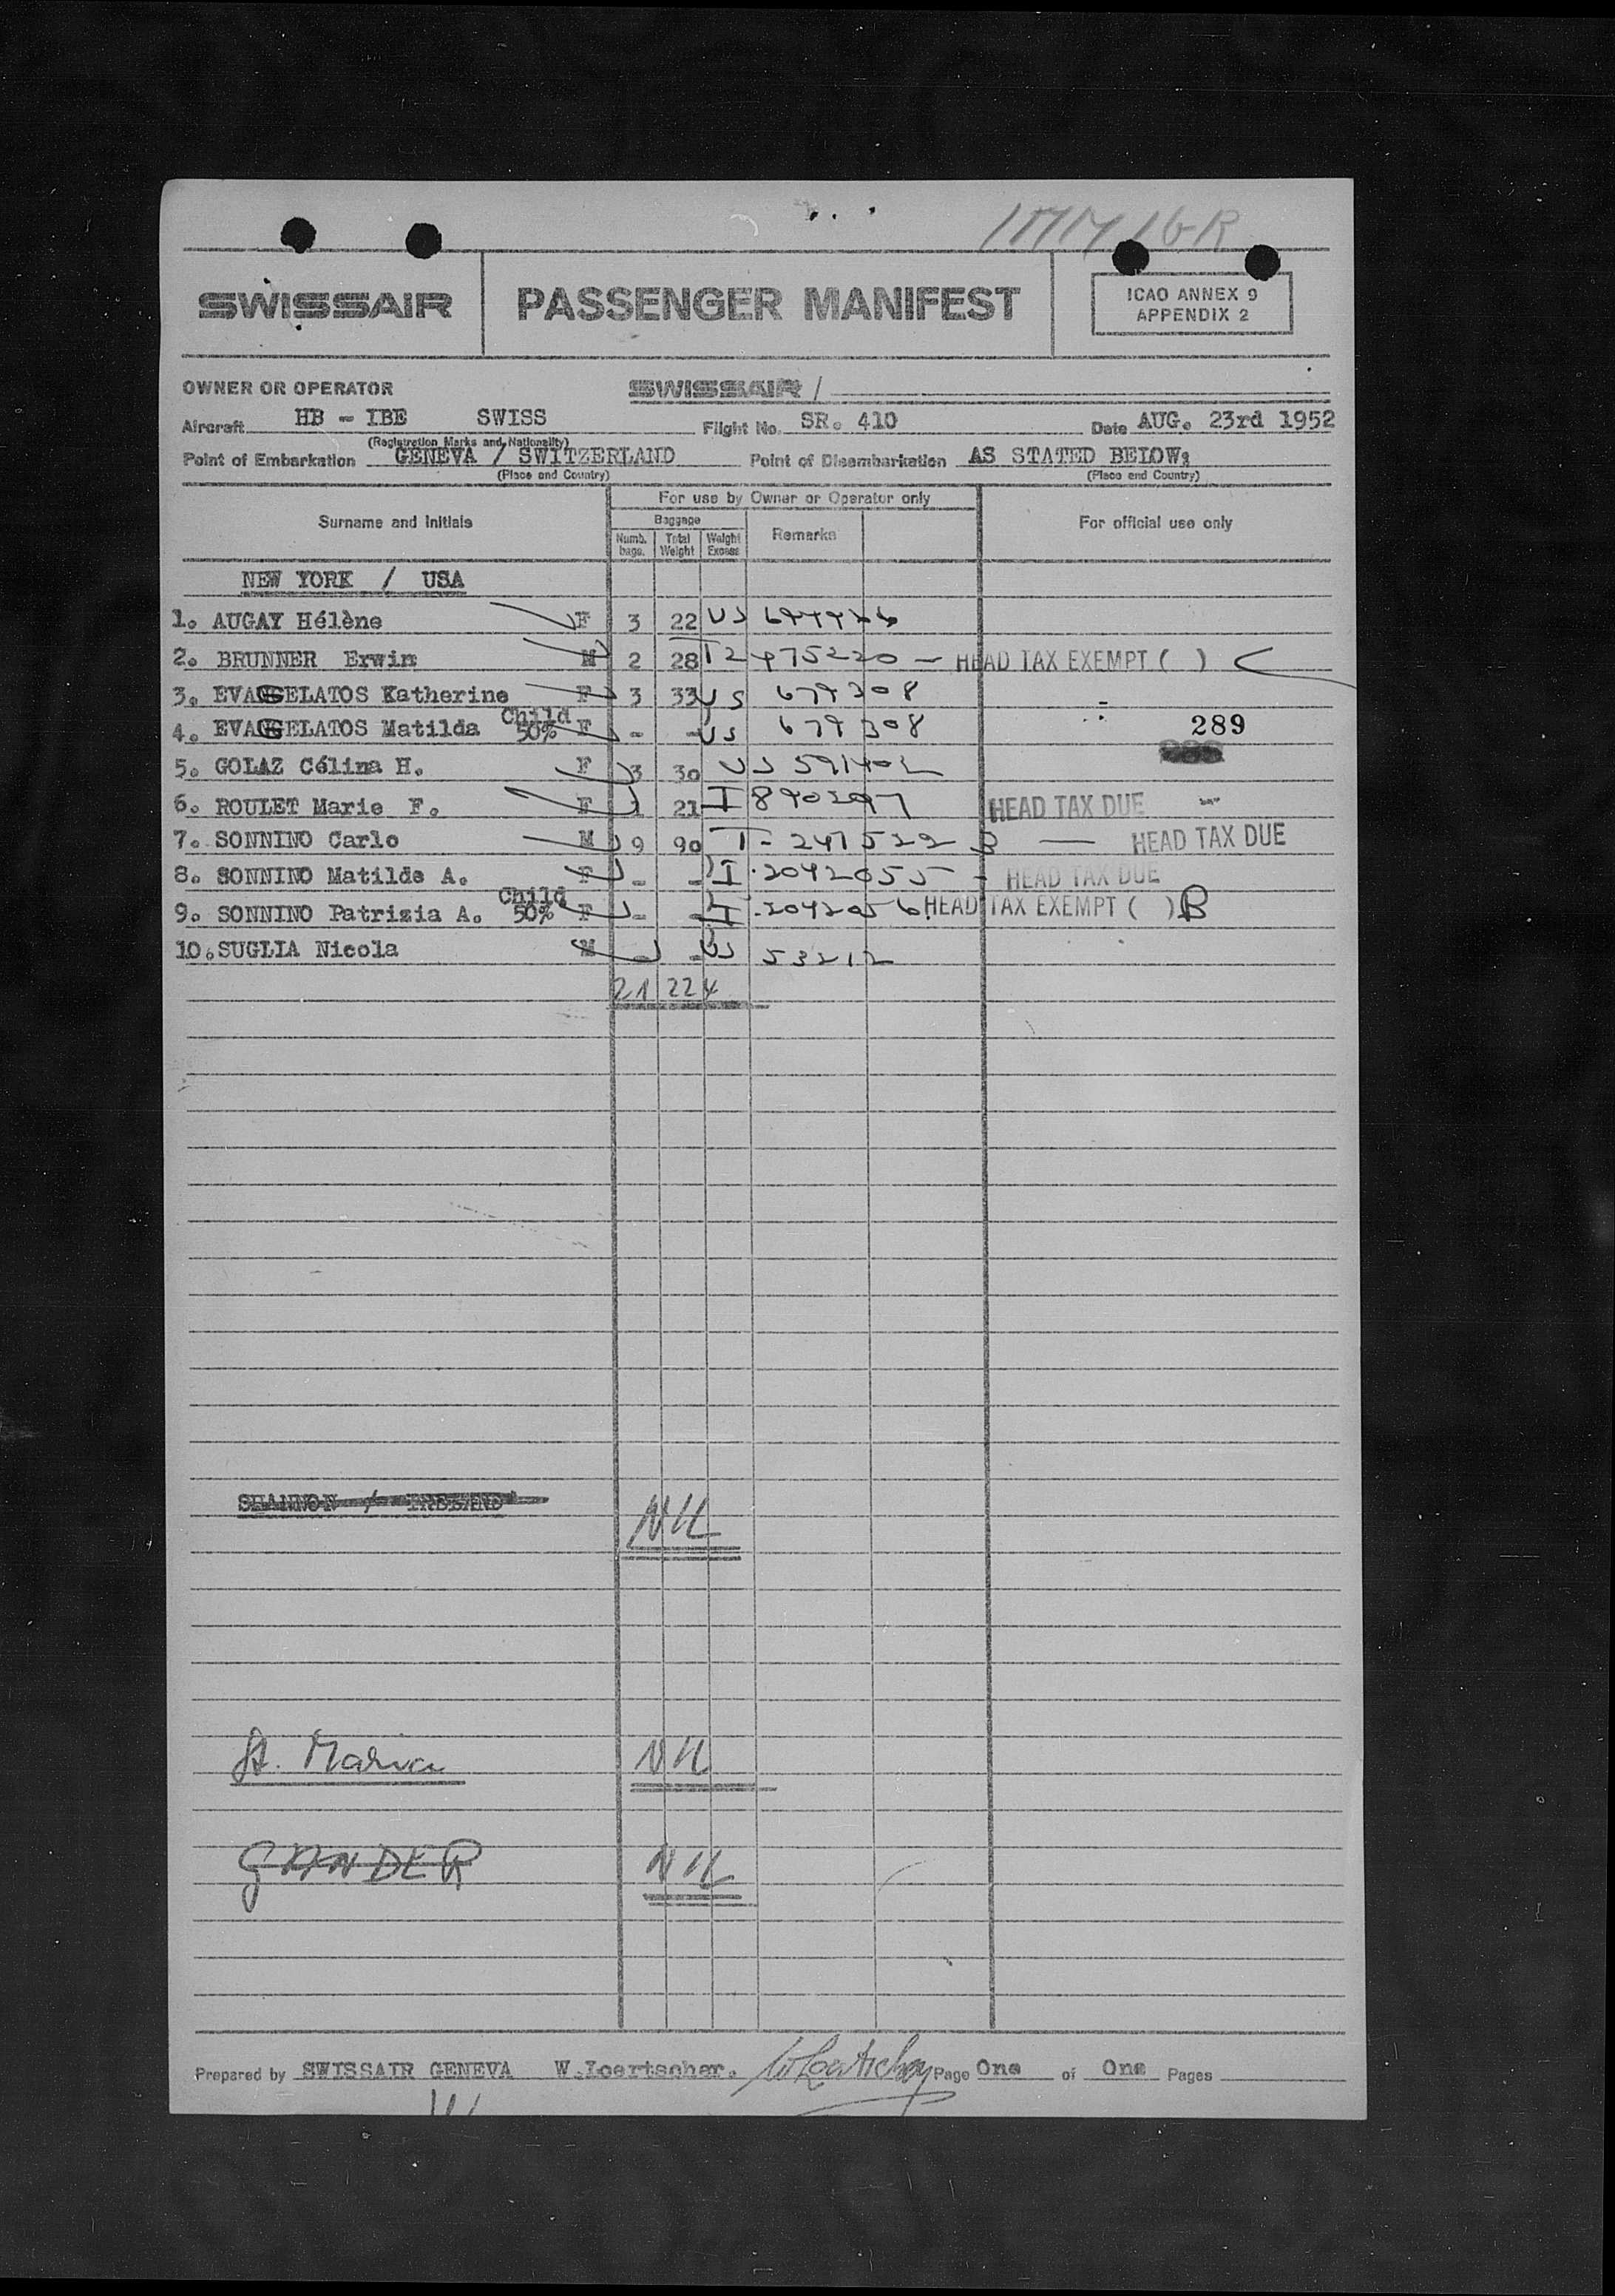 IMM 16-R
SWISSAIR PASSENGER MANIFEST ICAO ANNEX 9
APPENDIX 2
OWNER OR OPERATOR SWISSAIR /
Aircraft HB - IBE SWISS Flight No. SR. 410 Date AUG. 23rd 1952
(Registration Marks and Nationality)
Point of Embarkation GENEVA / SWITZERLAND Point of Disembarkation AS STATED BELOW:
(Place and Country) (Place and Country)
For use by Owner or Operator only
Surname and Initials Baggage Remarks For official use only
Numb. bags. Total Weight Weight Excess
NEW YORK / USA
1. AUGAY Hélène F 3 22 US
2. BRUNNER Erwin M 2 28 HEAD TAX EXEMPT ( )
3. EVAGGELATOS Katherine F 3 33 US 679308
4. EVAGGELATOS Matilda Child 50% F - - US 679308 289
5. GOLAZ Célina H. F 3 30 US
6. ROULET Marie F. F 1 21 I 890297 HEAD TAX DUE
7. SONNINO Carlo M 9 90 T - 247522 B HEAD TAX DUE
8. SONNINO Matilde A. F - - I. 2042055 - HEAD TAX DUE
9. SONNINO Patrizia A. Child 50% F - - I. 2042056 HEAD TAX EXEMPT ( ) B
10. SUGLIA Nicola M - - US 53212
21 224
SHANNON / IRELAND NIL
St. Maria NIL
GANDER NIL
Prepared by SWISSAIR GENEVA W.Loertscher. WLoertscher Page One of One Pages